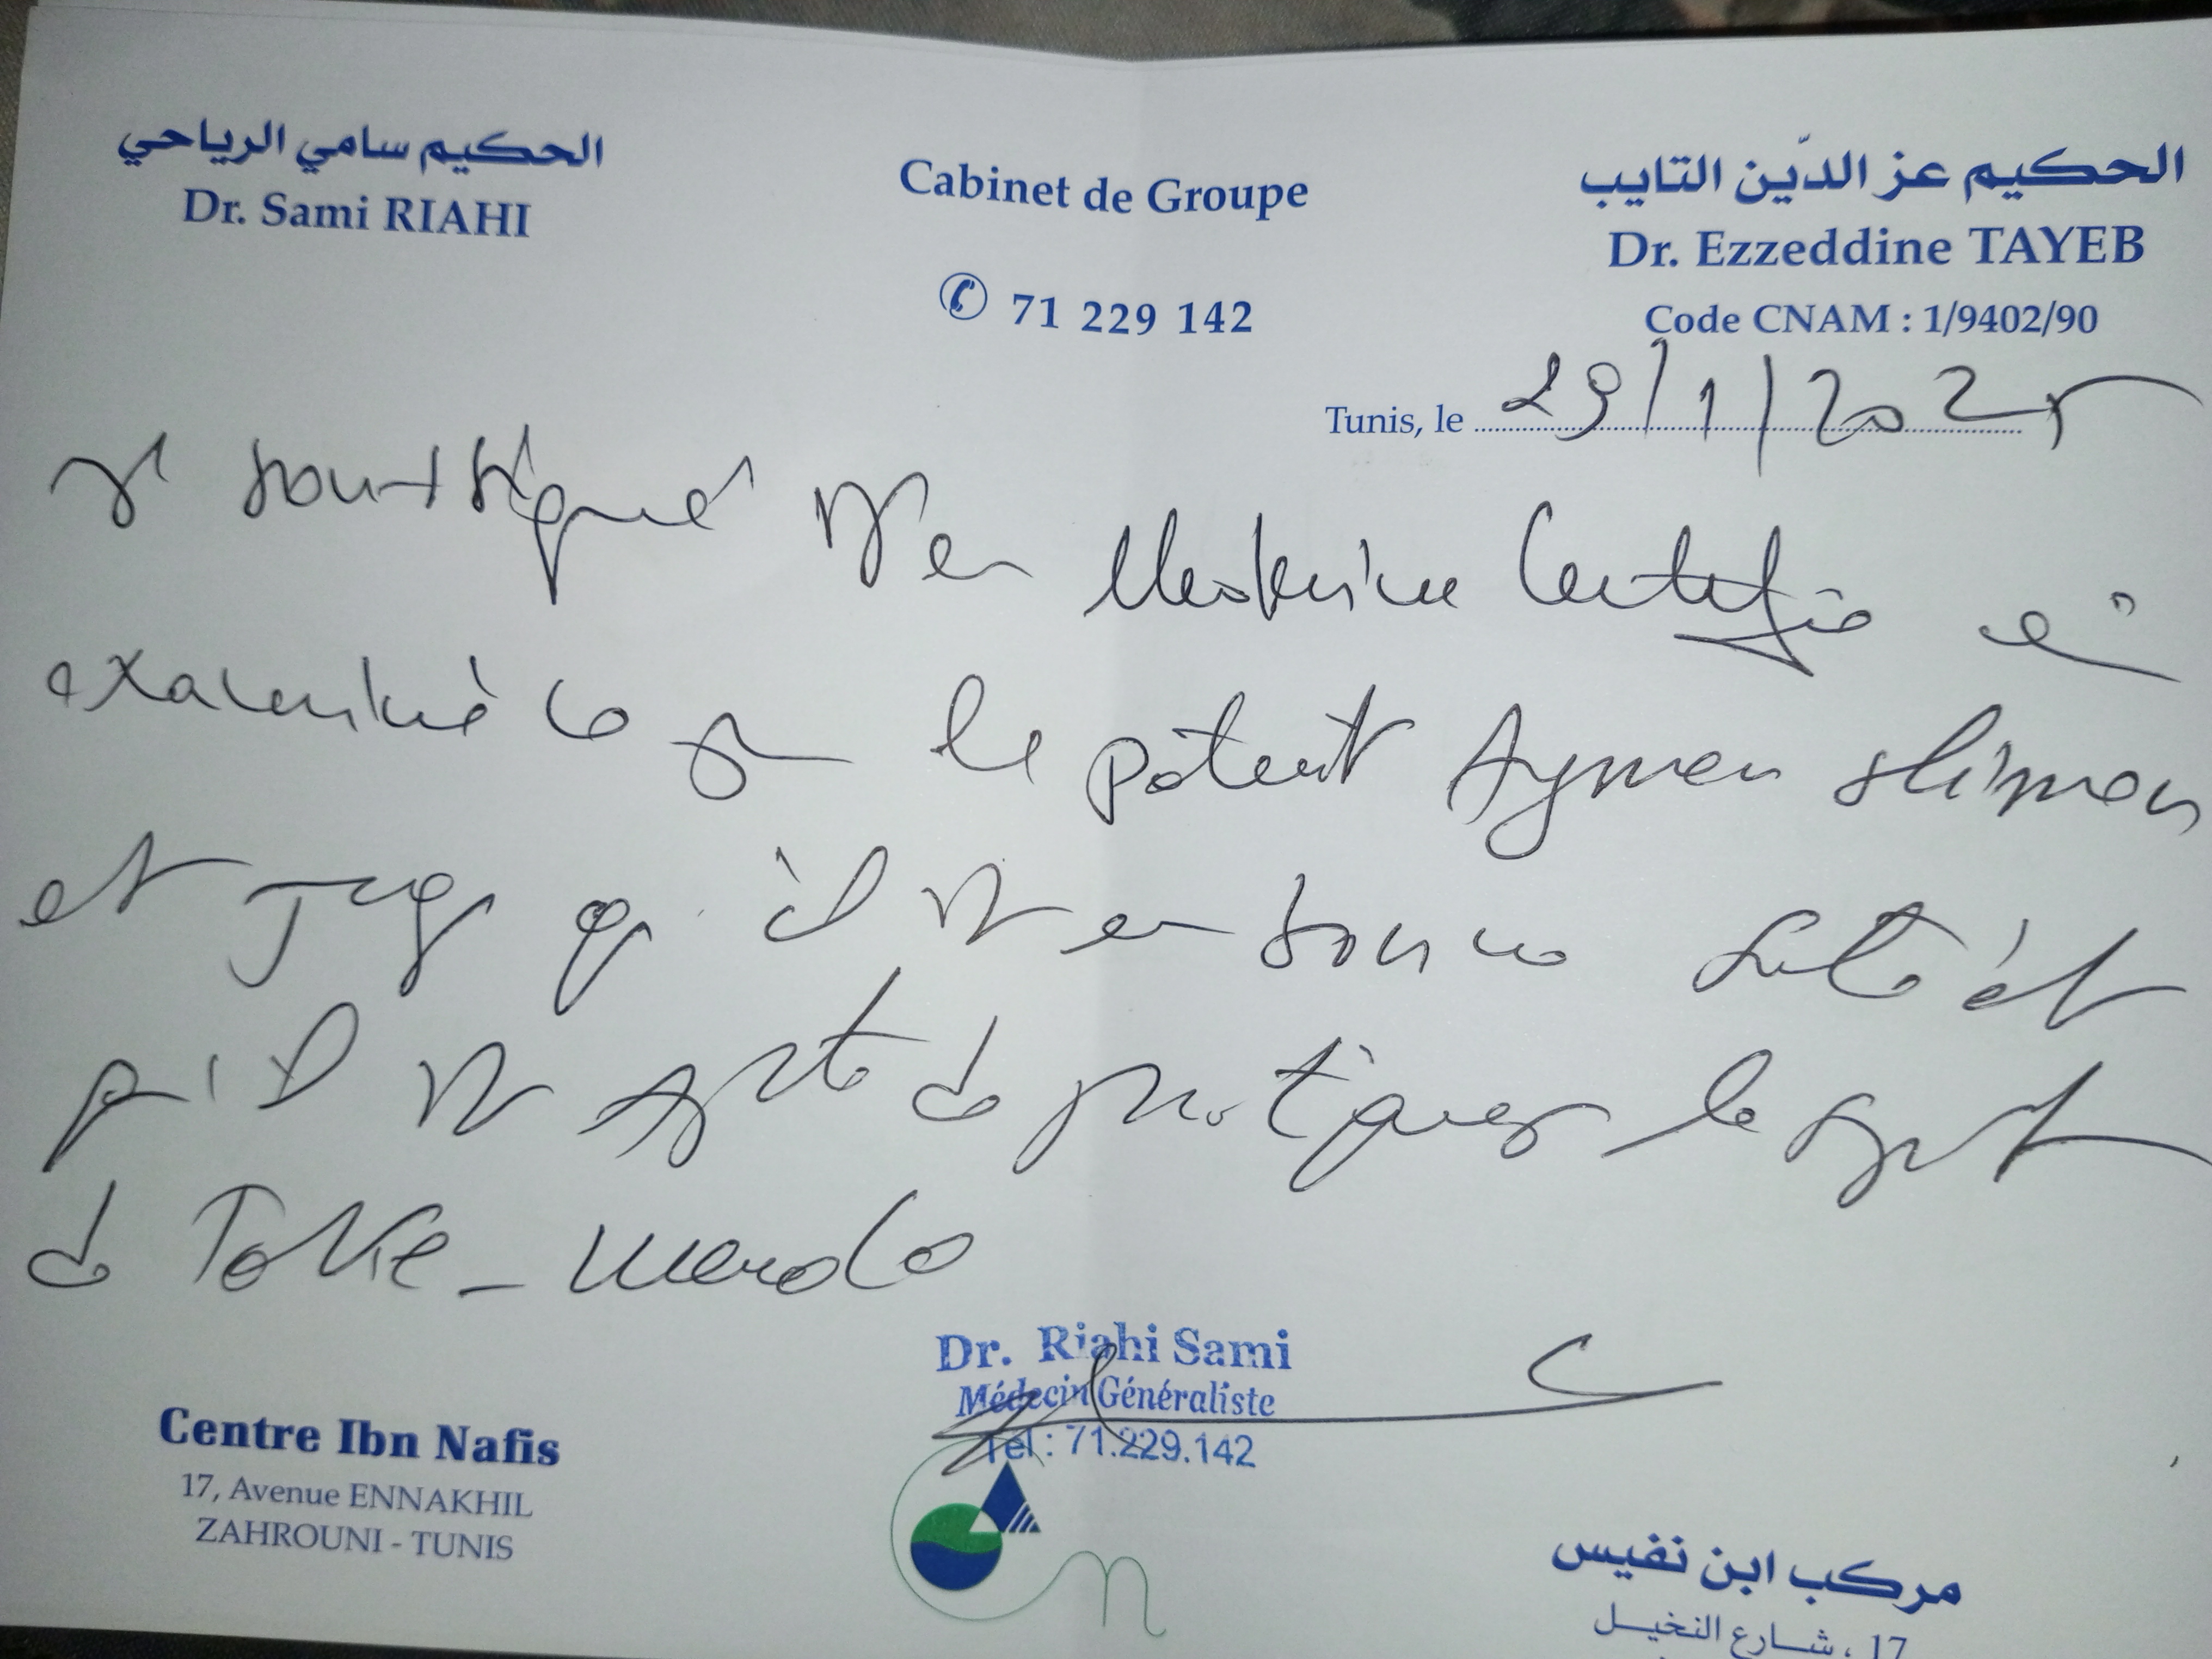 الحكيم سامي الرياحي
Dr. Sami RIAHI
Cabinet de Groupe
✆ 71 229 142
الحكيم عز الدّين التايب
Dr. Ezzeddine TAYEB
Code CNAM : 1/9402/90
Tunis, le 29/1/2025
soussigné Dr en Médecine Certifie
examiné ce jour le patient Aymen Slimen
et juge qu'il est en bonne santé et
qu'il est apte de pratiquer le sport
de Tolkie_mendo
Dr. Riahi Sami
Médecin Généraliste
Tel : 71.229.142
Centre Ibn Nafis
17, Avenue ENNAKHIL
ZAHROUNI - TUNIS
مركب ابن نفيس
17 ، شارع النخيل